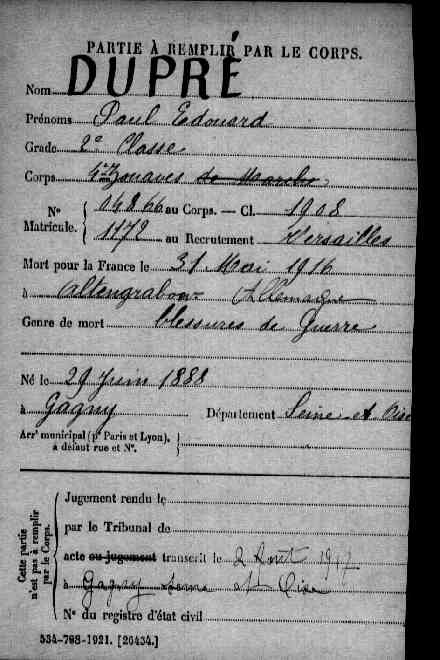 PARTIE À REMPLIR PAR LE CORPS.
Nom DUPRÉ
Prénoms Paul Edouard
Grade 2e Classe
Corps 4e Zouaves de Marche
N° 04866 au Corps. — Cl. 1908
Matricule. 1172 au Recrutement Versailles
Mort pour la France le 31 Mai 1916
à Altengrabow Allemagne
Genre de mort blessures de Guerre
Né le 29 Juin 1888
à Gagny Département Seine et Oise
Arrt municipal (pr Paris et Lyon),
à défaut rue et N°.
Cette partie n'est pas à remplir par le Corps.
Jugement rendu le
par le Tribunal de
acte ou jugement transcrit le 2 Aout 1917
à Gagny Seine et Oise
N° du registre d'état civil
534-708-1921. [26434.]